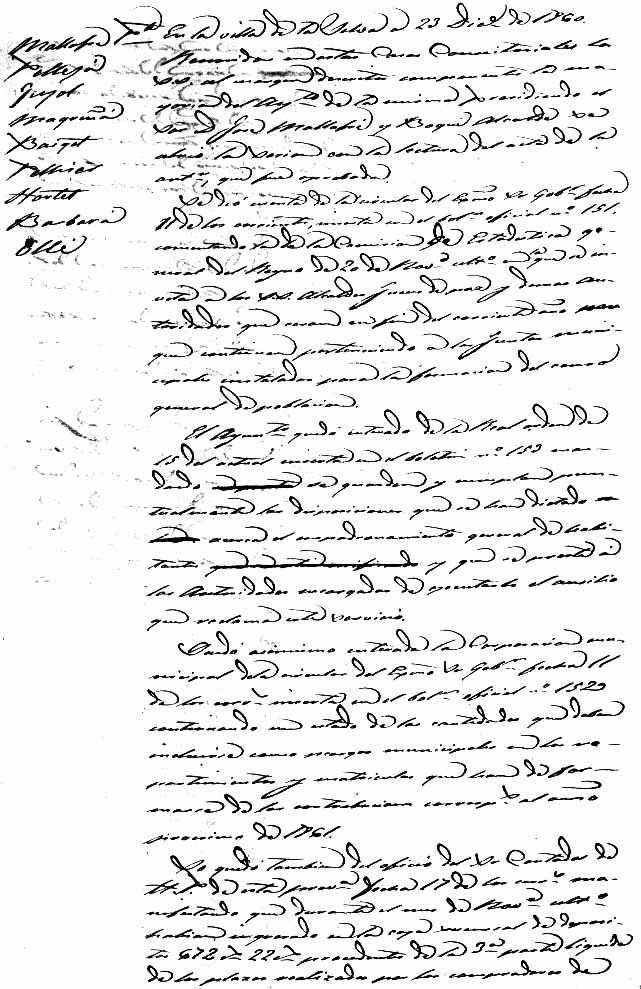 Mallafré Pte
Pellejá
Pujol
Maquiña
Baiget
Pellicer
Hortet
Barbará
Ollé
En la villa de la Selva a 23 Dice de 1860.
Reunidos en estas Casas Consistoriales los
SS. al margen descritos componentes la ma-
yoria del Aytto de la misma presidiendo el
Sor D. José Mallafré y Roqué Alcalde se
abrió la sesion con la lectura del acta de la
antr, que fue aprobada.
Se dió cuenta de la circular del Exmo Sr Gobr fecha
11 de los corrientes inserta en el boln oficial no 151.
comentando la de la Comision de Estadistica ge-
neral del Reyno de 20 de Novre ultmo en que se in-
vita a los SS. Alcaldes Jueces de paz y demas au-
toridades que cesan en fin del corriente año para
que continuen perteneciendo a las Juntas muni-
cipales instaladas para la formacion del censo
general de poblacion.
El Ayuntto quedó enterado de la Real orden de
15 del actual inserta en el boletin no 153 man-
dando se guarden y cumplan pun-
tualmente las disposiciones que se han dictado
acerca el empadronamiento general de habi-
tantes y que se preste á
las Autoridades encargadas de ejecutarlo el auxilio
que reclama este servicio.
Quedó asimismo enterada la Corporacion mu-
nicipal de la circular del Exmo Sr Gobr fecha 11
de los corrs inserta en el boln oficial no 152
continuando un estado de las cantidades que deben
incluirse como recargos municipales en los re-
partimientos y matriculas que han de for-
marse de las contribuciones corresps al año
proximo de 1861.
Lo quedó tambien del oficio del Sr Contador de
H. P. de esta prova fecha 17 de los corrs ma-
nifestando que durante el mes de Novre ultmo
habian ingresado en la caja sucursal de deposi-
tos 672 rs 22 cs procedente de la 3a parte liquida
de los plazos realizados por los compradores de